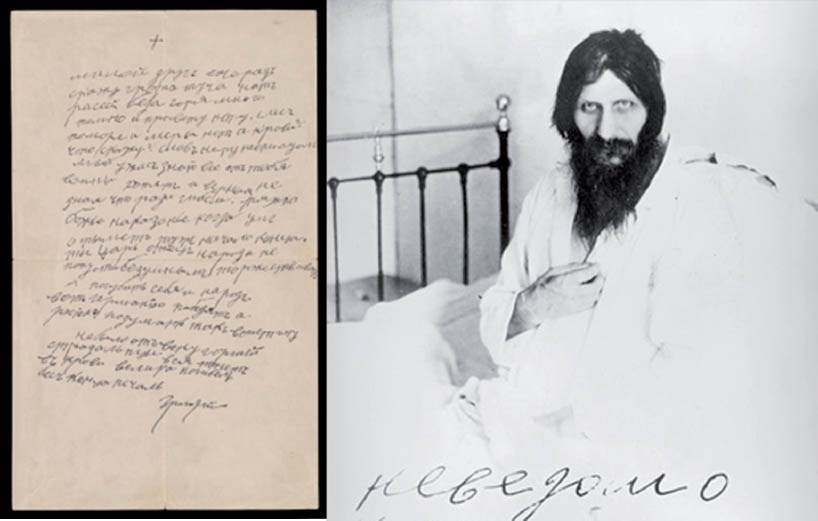 +
милой друг есче разъ
скажу грозна туча нат
расеей беда горя много
темно и просвету нету. слес
то море и меры нет а крови
что скажу слов нету неописуом
мый ужас знаю все от тебя
войны хотят и верныя не
зная что ради гибели. тяжко
божье наказанье когда ум
отымет тут начало конца.
ты царь отец народа не
попусти безумным торжествовать
и погубить себя и народ
вот германию победят а
расея подумать так воистину
не было от веку горшей
страдалицы вся тонет
в крови велика погибель
бес конца печаль
Григорий
неведомо